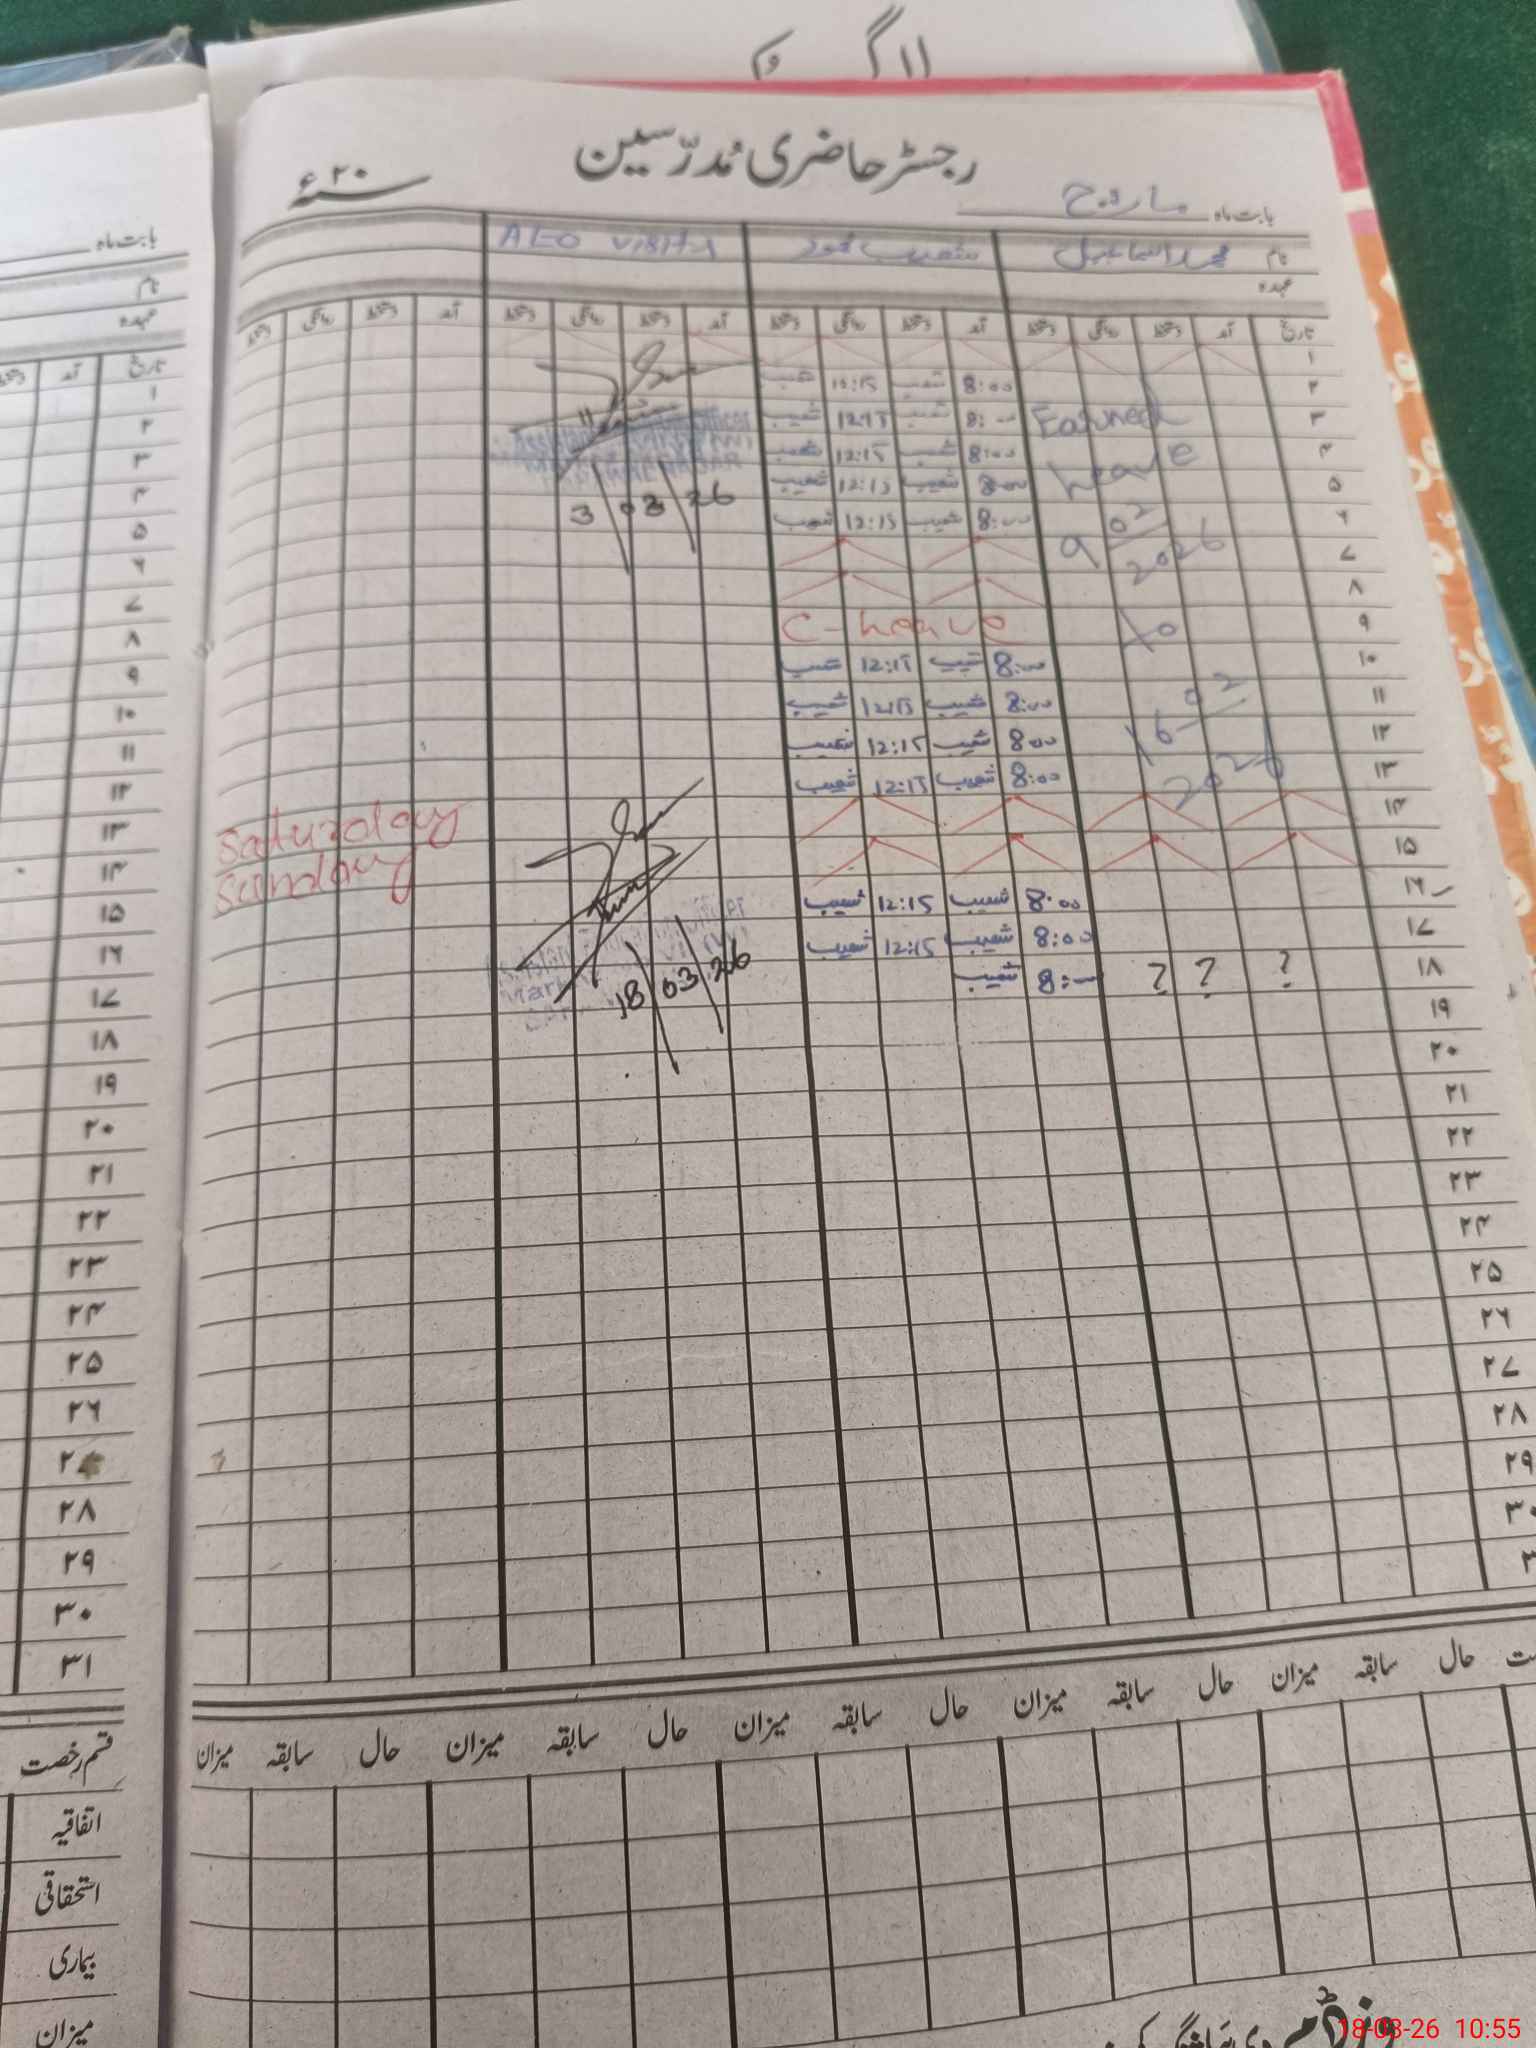 رجسٹر حاضری مُدرّسین
۲۰ ء
بابت ماہ مارچ
نام محمد اسماعیل شعیب محمود AEO visit
عہدہ
تاریخ آمد دستخط روانگی دستخط آمد دستخط روانگی دستخط آمد دستخط روانگی دستخط آمد دستخط روانگی دستخط
۱
۲ 8:00 شعیب 12:15 شعیب
۳ Earned 8:00 شعیب 12:15 شعیب
۴ Leave 8:00 شعیب 12:15 شعیب
۵ 8:00 شعیب 12:15 شعیب 3/03/26
۶ 9 02 2026 8:00 شعیب 12:15 شعیب
۷
۸
۹ To C-Leave
۱۰ 8:00 شعیب 12:15 شعیب
۱۱ 16 02 2026 8:00 شعیب 12:15 شعیب
۱۲ 8:00 شعیب 12:15 شعیب
۱۳ 8:00 شعیب 12:15 شعیب
۱۴ Saturday
۱۵ Sunday
۱۶ 8:00 شعیب 12:15 شعیب
۱۷ 8:00 شعیب 12:15 شعیب
۱۸ ? ? ? 8:00 شعیب 18/03/26
۱۹
۲۰
۲۱
۲۲
۲۳
۲۴
۲۵
۲۶
۲۷
۲۸
۲۹
۳۰
حال سابقہ میزان حال سابقہ میزان حال سابقہ میزان حال سابقہ میزان
بابت ماہ
نام
عہدہ
تاریخ آمد
۱
۲
۳
۴
۵
۶
۷
۸
۹
۱۰
۱۱
۱۲
۱۳
۱۴
۱۵
۱۶
۱۷
۱۸
۱۹
۲۰
۲۱
۲۲
۲۳
۲۴
۲۵
۲۶
۲۷
۲۸
۲۹
۳۰
۳۱
قسم رخصت
اتفاقیہ
استحقاقی
بیماری
میزان
18-03-26 10:55